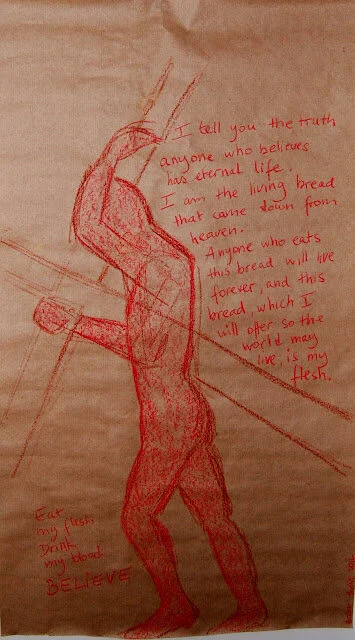 I tell you the truth
anyone who believes
has eternal life.
I am the living bread
that came down from
heaven.
Anyone who eats
this bread will live
forever, and this
bread, which I
will offer so the
world may
live, is my
flesh.
Eat
my flesh
Drink
my blood
BELIEVE